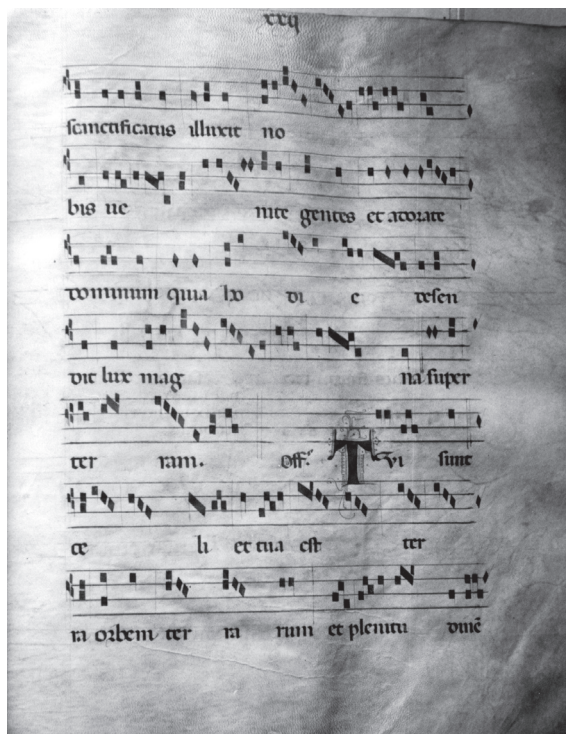 xxij
sanctificatus illuxit no
bis ve nite gentes et adorate
dominum quia ho di e descen
dit lux mag na super
ter ram. Off. Tvi sunt
ce li et tua est ter
ra orbem ter ra rum et plenitu dinē